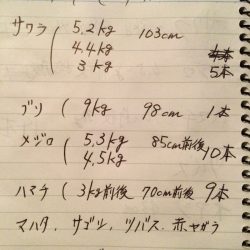 サワラ ( 5.2kg 103cm
4.4kg
3kg 5本
ブリ ( 9kg 98cm 1本
メジロ ( 5.3kg 85cm前後 10本
4.5kg
ハマチ ( 3kg前後 70cm前後 9本
マハタ、サゴシ、ツバス、赤ヤガラ